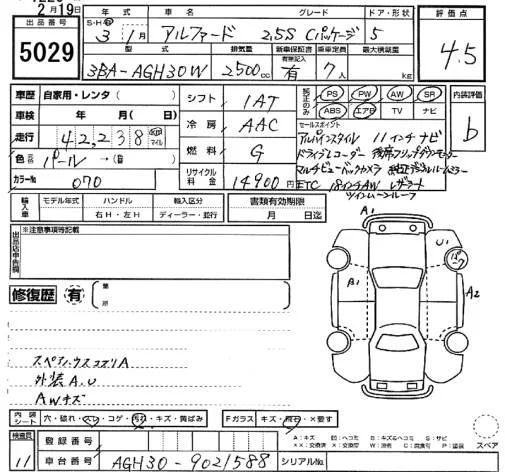 2月19日
出品番号
5029
年式 車名 グレード ドア・形状
S・H・R 3年 1月 アルファード 2.5S Cパッケージ 5
型式 排気量 新車保証書 乗車定員 最大積載量
有無記入
3BA-AGH30W 2500cc 有 7人 kg
評価点
4.5
車歴 自家用・レンタ( )
車検 年 月( 日)
走行 42,238 km マイル
色 パール → (色替)
カラーNo 070
シフト 1AT
冷房 AAC
燃料 G
リサイクル料金 14900円
純正のみ PS PW AW SR
ABS エアB TV ナビ
内装評価
b
セールスポイント
アルパインスタイル 11インチナビ
ドライブレコーダー 後席フリップダウンモニター
マルチビューバックカメラ 純正デジタルルームミラー
ETC 18インチAW レザーシート
ツインムーンルーフ
輸入車 モデル年式 ハンドル 輸入区分 書類有効期限
右H・左H ディーラー・並行 月 日迄
出品店申告欄
※注意事項等記載
修復歴 有 箇所
スペアハウスコアリA
外装A.U
AWキズ
A1
U1
パンク
B1
A2
内装シート 穴・破れ・スレ・コゲ・汚れ・キズ・黄ばみ Fガラス キズ・飛石・×要す
検査員 11
登録番号
車台番号 AGH30-9021588 シリアルNo.
A:キズ E:ヘコミ B:キズ&ヘコミ S:サビ
××:交換済 ×:交換要 W:波有 C:腐食有 P:塗装
スペア